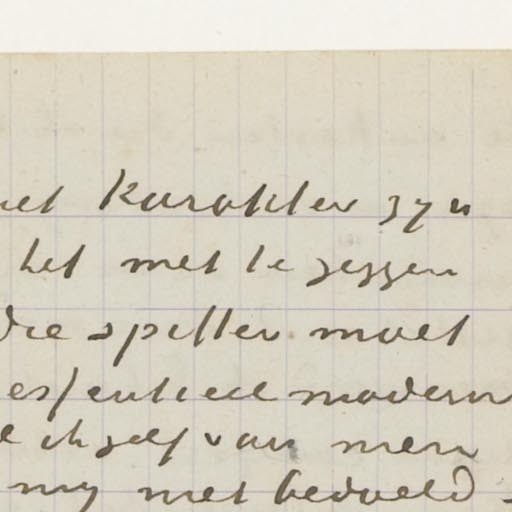 het karakter zyn
het met te zeggen
die spetter moet
essentieel modern
ik zelf van men
my met bedoeld -